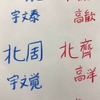 宇文泰 高歓
北周 北齊
宇文覚 高洋